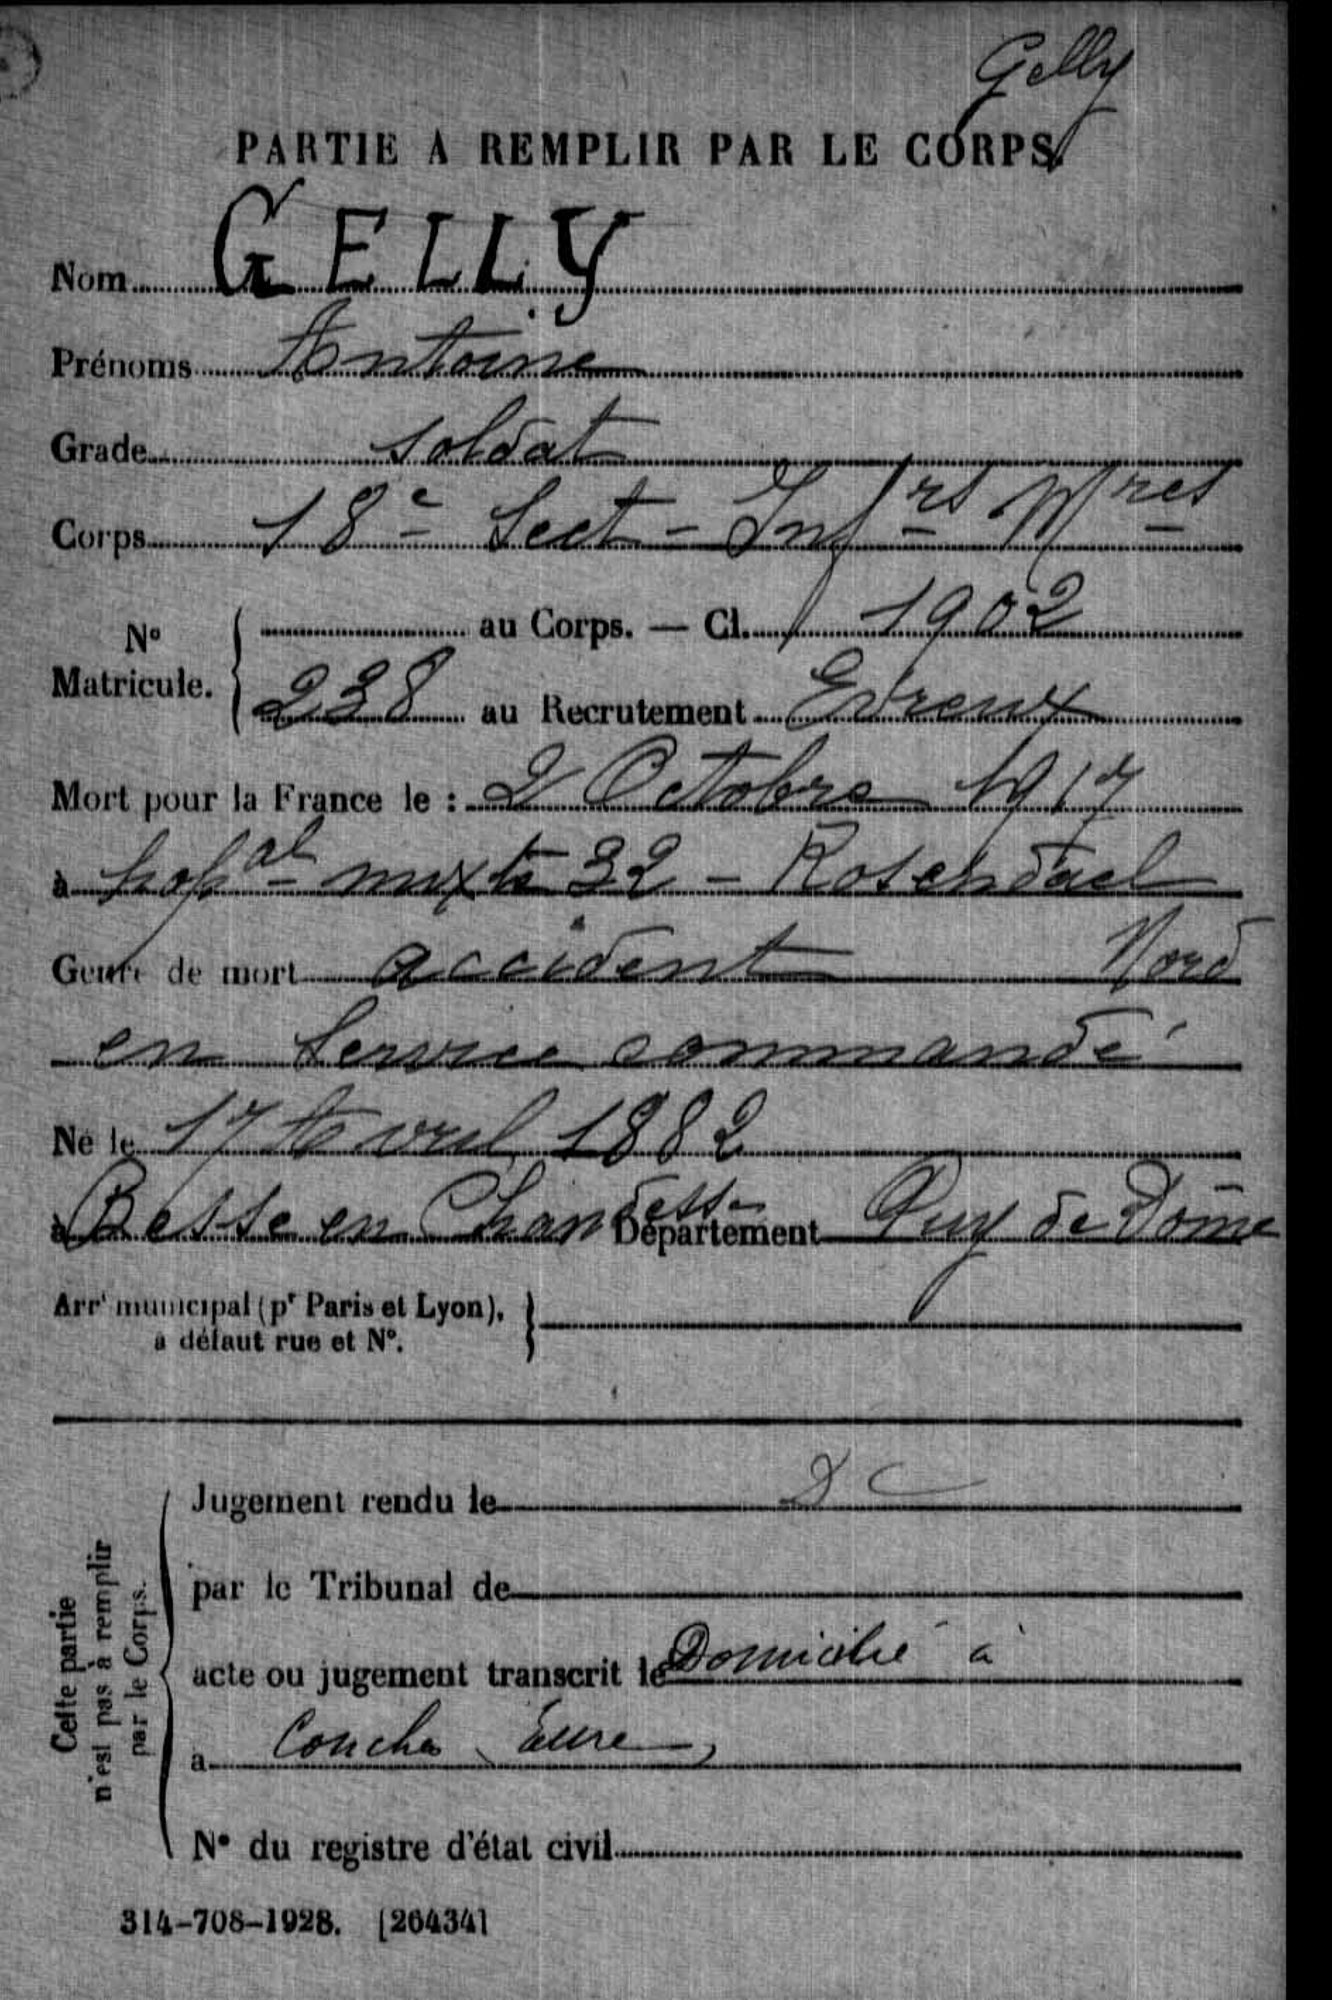 Gelly
PARTIE A REMPLIR PAR LE CORPS.
Nom GELLY
Prénoms Antoine
Grade soldat
Corps 18e Sect - Infrs Mres
N° Matricule. au Corps. — Cl. 1902
238 au Recrutement Evreux
Mort pour la France le : 2 Octobre 1917
à hopal mixte 32 - Rosendael
Nord
Genre de mort accident
en service commandé
Né le 17 Avril 1882
à Besse en Chandesse Département Puy de Dôme
Arrt municipal (pr Paris et Lyon),
à défaut rue et N°.
Cette partie
n'est pas à remplir
par le Corps.
Jugement rendu le DC
par le Tribunal de
acte ou jugement transcrit le Domicilié à
à Conches Eure
N° du registre d'état civil
314-708-1928. [26434]